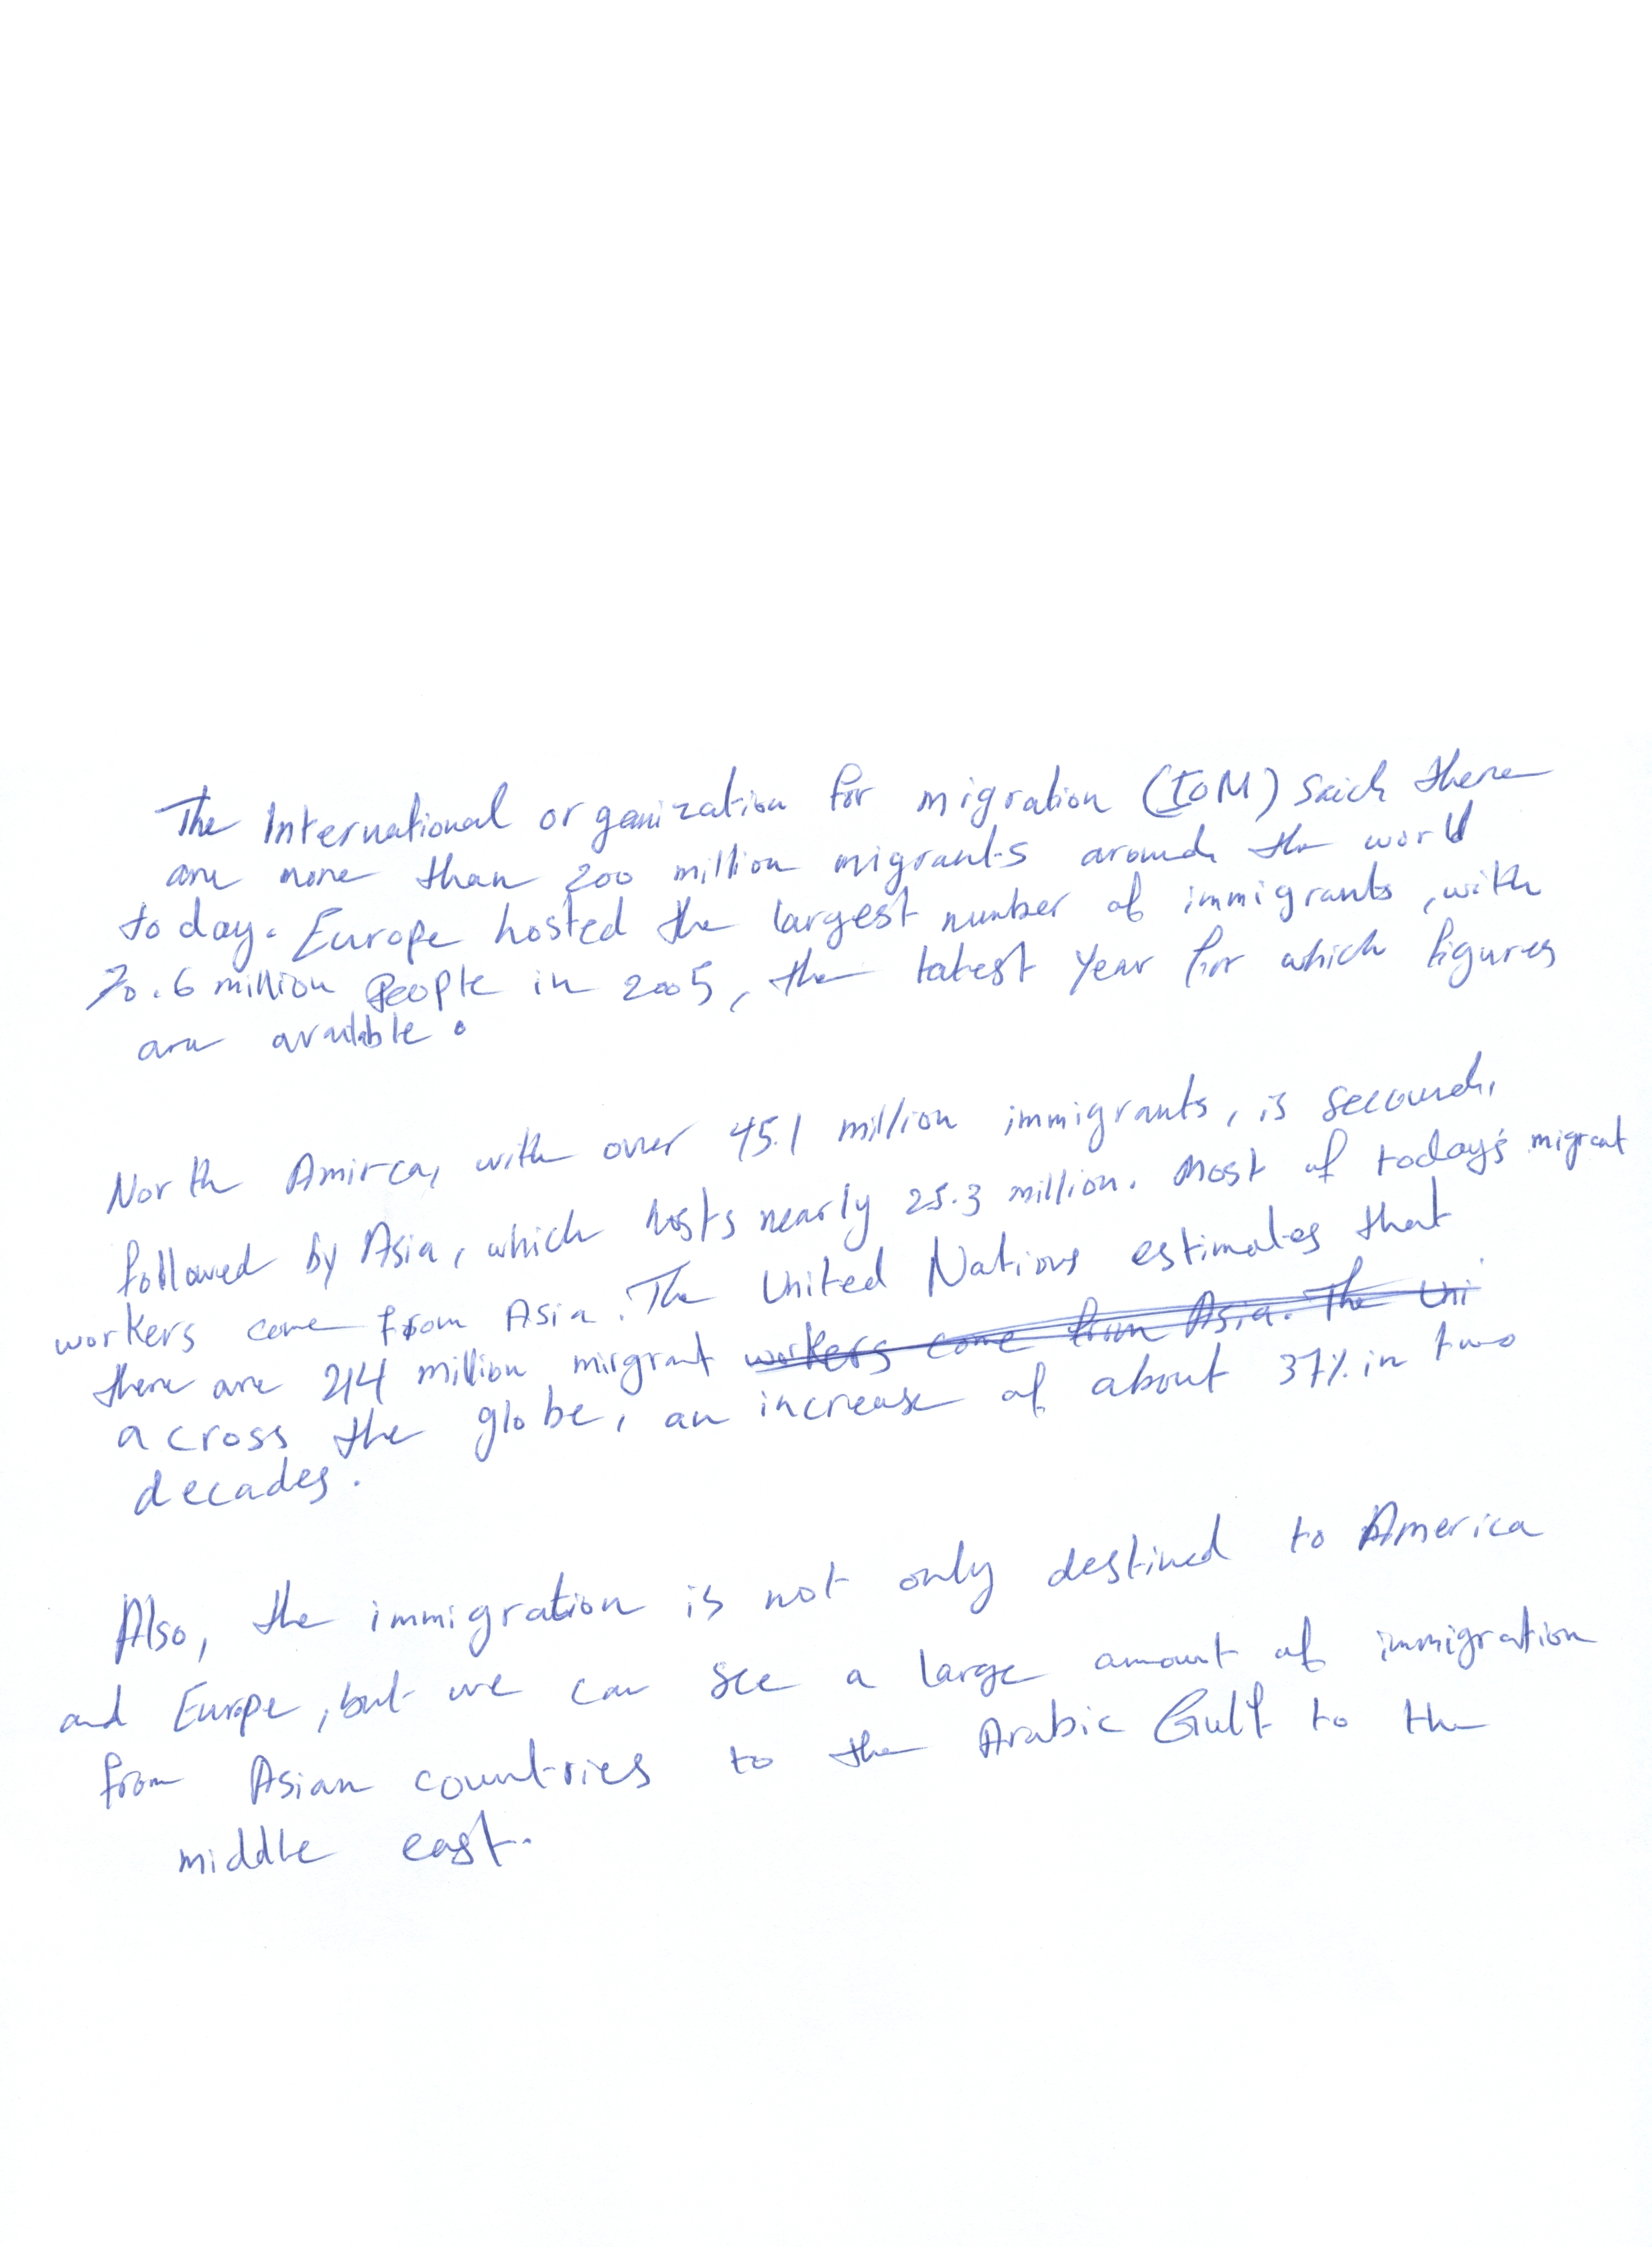 The International organization for migration (IOM) said there
are more than 200 million migrants around the world
today. Europe hosted the largest number of immigrants, with
70.6 million People in 2005, the latest year for which figures
are available.
North Amirca, with over 45.1 million immigrants, is second,
followed by Asia, which hosts nearly 25.3 million. Most of today's migrant
workers come from Asia. The United Nations estimates that
there are 214 million mirgrant workers come from Asia. The Uni
across the globe, an increase of about 37% in two
decades.
Also, the immigration is not only destined to America
and Europe, but we can see a large amount of immigration
from Asian countries to the Arabic Gulf to the
middle east.